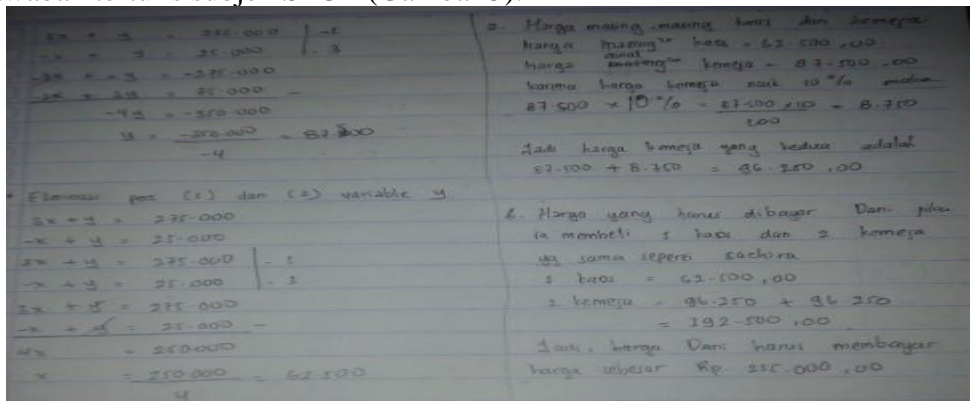 3x + y = 275.000 | -1
-x + y = 25.000 | . 3
-3x + -y = -275.000
-3x + 3y = 75.000 -
-4y = -350.000
y = -350.000 = 87.500
-4
Eliminasi pers (1) dan (2) variable y
3x + y = 275.000
-x + y = 25.000
3x + y = 275.000 | . 1
-x + y = 25.000 | . 1
3x + y = 275.000
-x + y = 25.000 -
4x = 250.000
x = 250.000 = 62.500
4
Harga masing-masing kaos dan kemeja
harga masing" kaos = 62.500,00
harga kemeja = 87.500,00
karena harga kemeja naik 10 % maka
87.500 x 10 % = 87.500 x 10 = 8.750
100
Jadi harga kemeja yang kedua adalah
87.500 + 8.750 = 96.250,00
Harga yang harus dibayar Dani
ia membeli 1 kaos dan 2 kemeja
yg sama seperti sachira
1 kaos = 62.500,00
2 kemeja = 96.250 + 96.250
= 192.500,00
Jadi, harga Dani harus membayar
harga sebesar Rp. 255.000,00